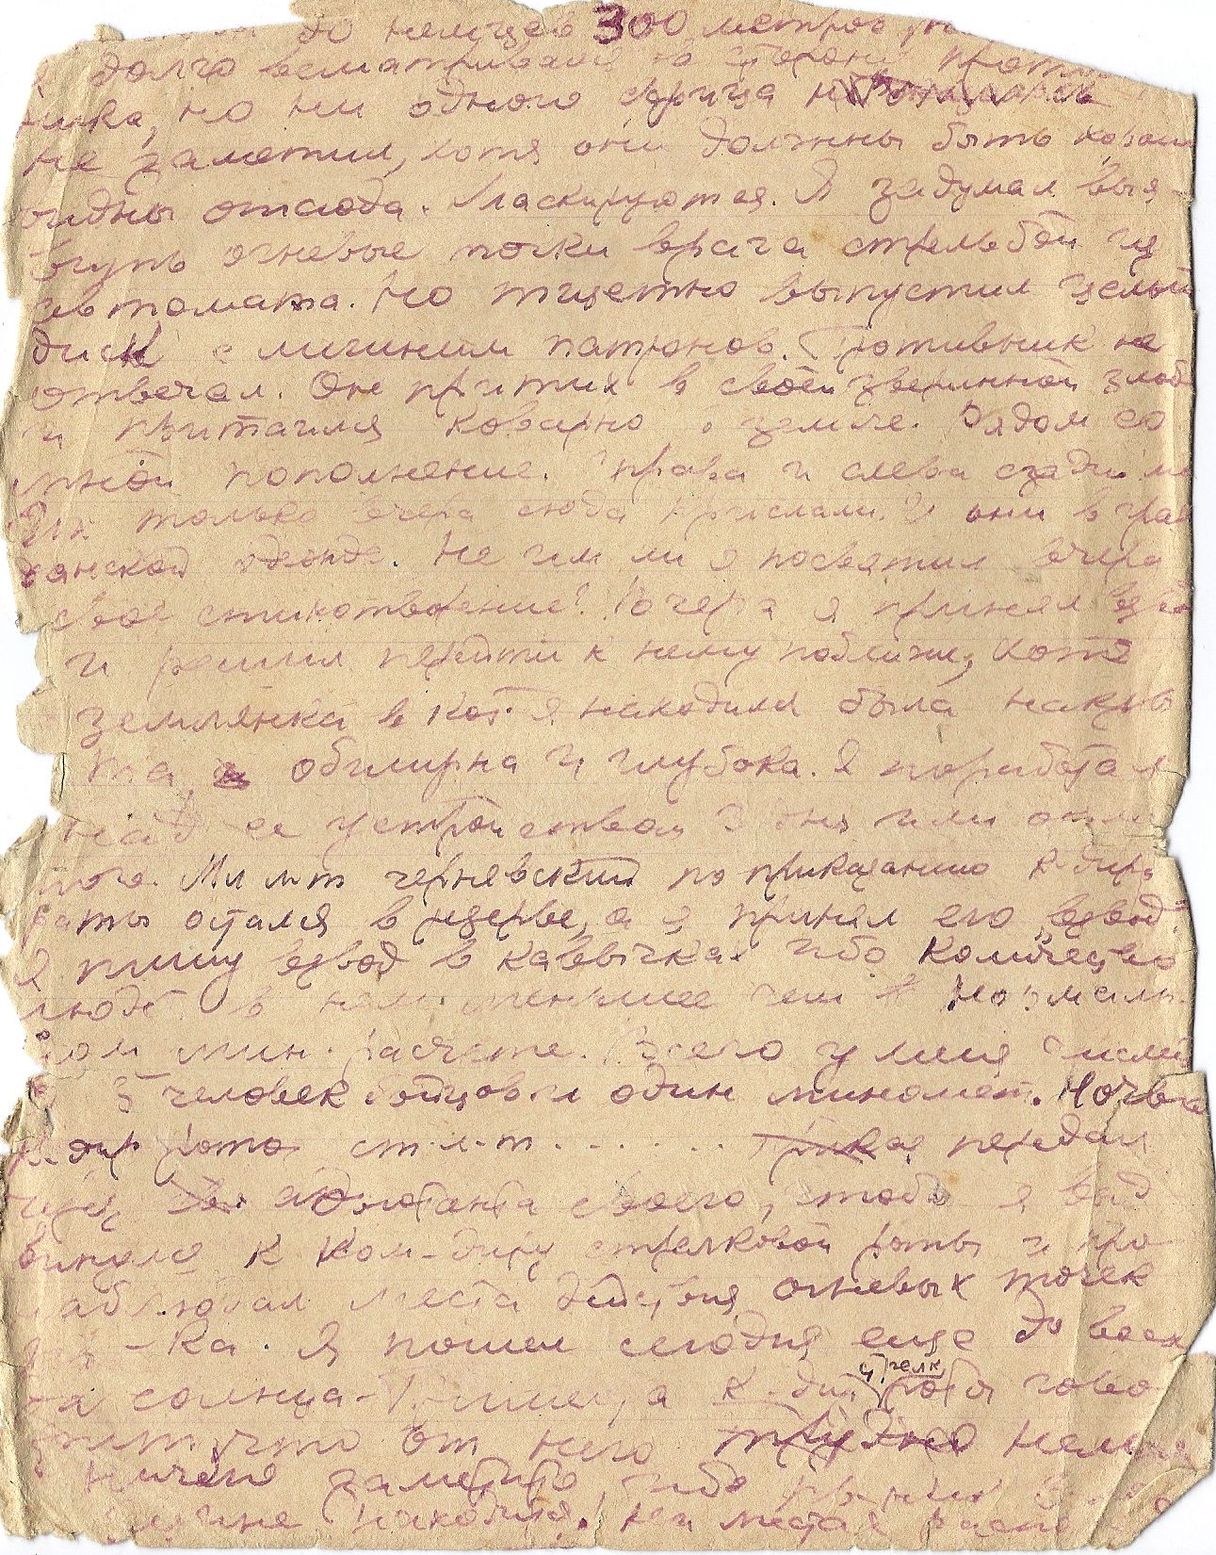 до немцев 300 метров, п
Я долго всматривался в сторону проти
ника, но ни одного фрица
не заметил, хотя они должны быть хорош
видны отсюда. Маскируются. Я задумал выя-
огневые точки врага стрельбой из
автомата. Но тщетно выпустил целый
диск с лишним патронов. Противник не
отвечал. Он притих в своей звериной злобе
и притаился коварно в земле. Рядом со
мной пополнение. Справа и слева сзади м
Их только вчера сюда прислали. И они в граж
данской одежде. Не им ли я посвятил вчера
своё стихотворение? Вчера я принял взво
и решил перейти к нему поближе, хотя
землянка в кот. я находился была накры
та, обширна и глубока. Я поработал
над ее устройством 3 дня или около
того. Мл. л-т Черневский по приказанию к-дира
роты остался в резерве, а я принял его „взвод".
Я пишу взвод в кавычках ибо количество
людей в нем меньшее чем в нормаль-
ном мин. расчете. Всего у меня
5 человек бойцов и один миномет. Ночью
к-дир роты ст. л-т . . . . . . . передал
через адъютанта своего, чтобы я выд
винулся к ком-диру стрелковой роты и про
наблюдал места действия огневых точек
пр-ка. Я пошел сегодня еще до восх
-а солнца. Пришел, а к-дир стрелк. роты гово
рит, что от него трудно немцев
ничего заметить, ибо
находился. Но и места